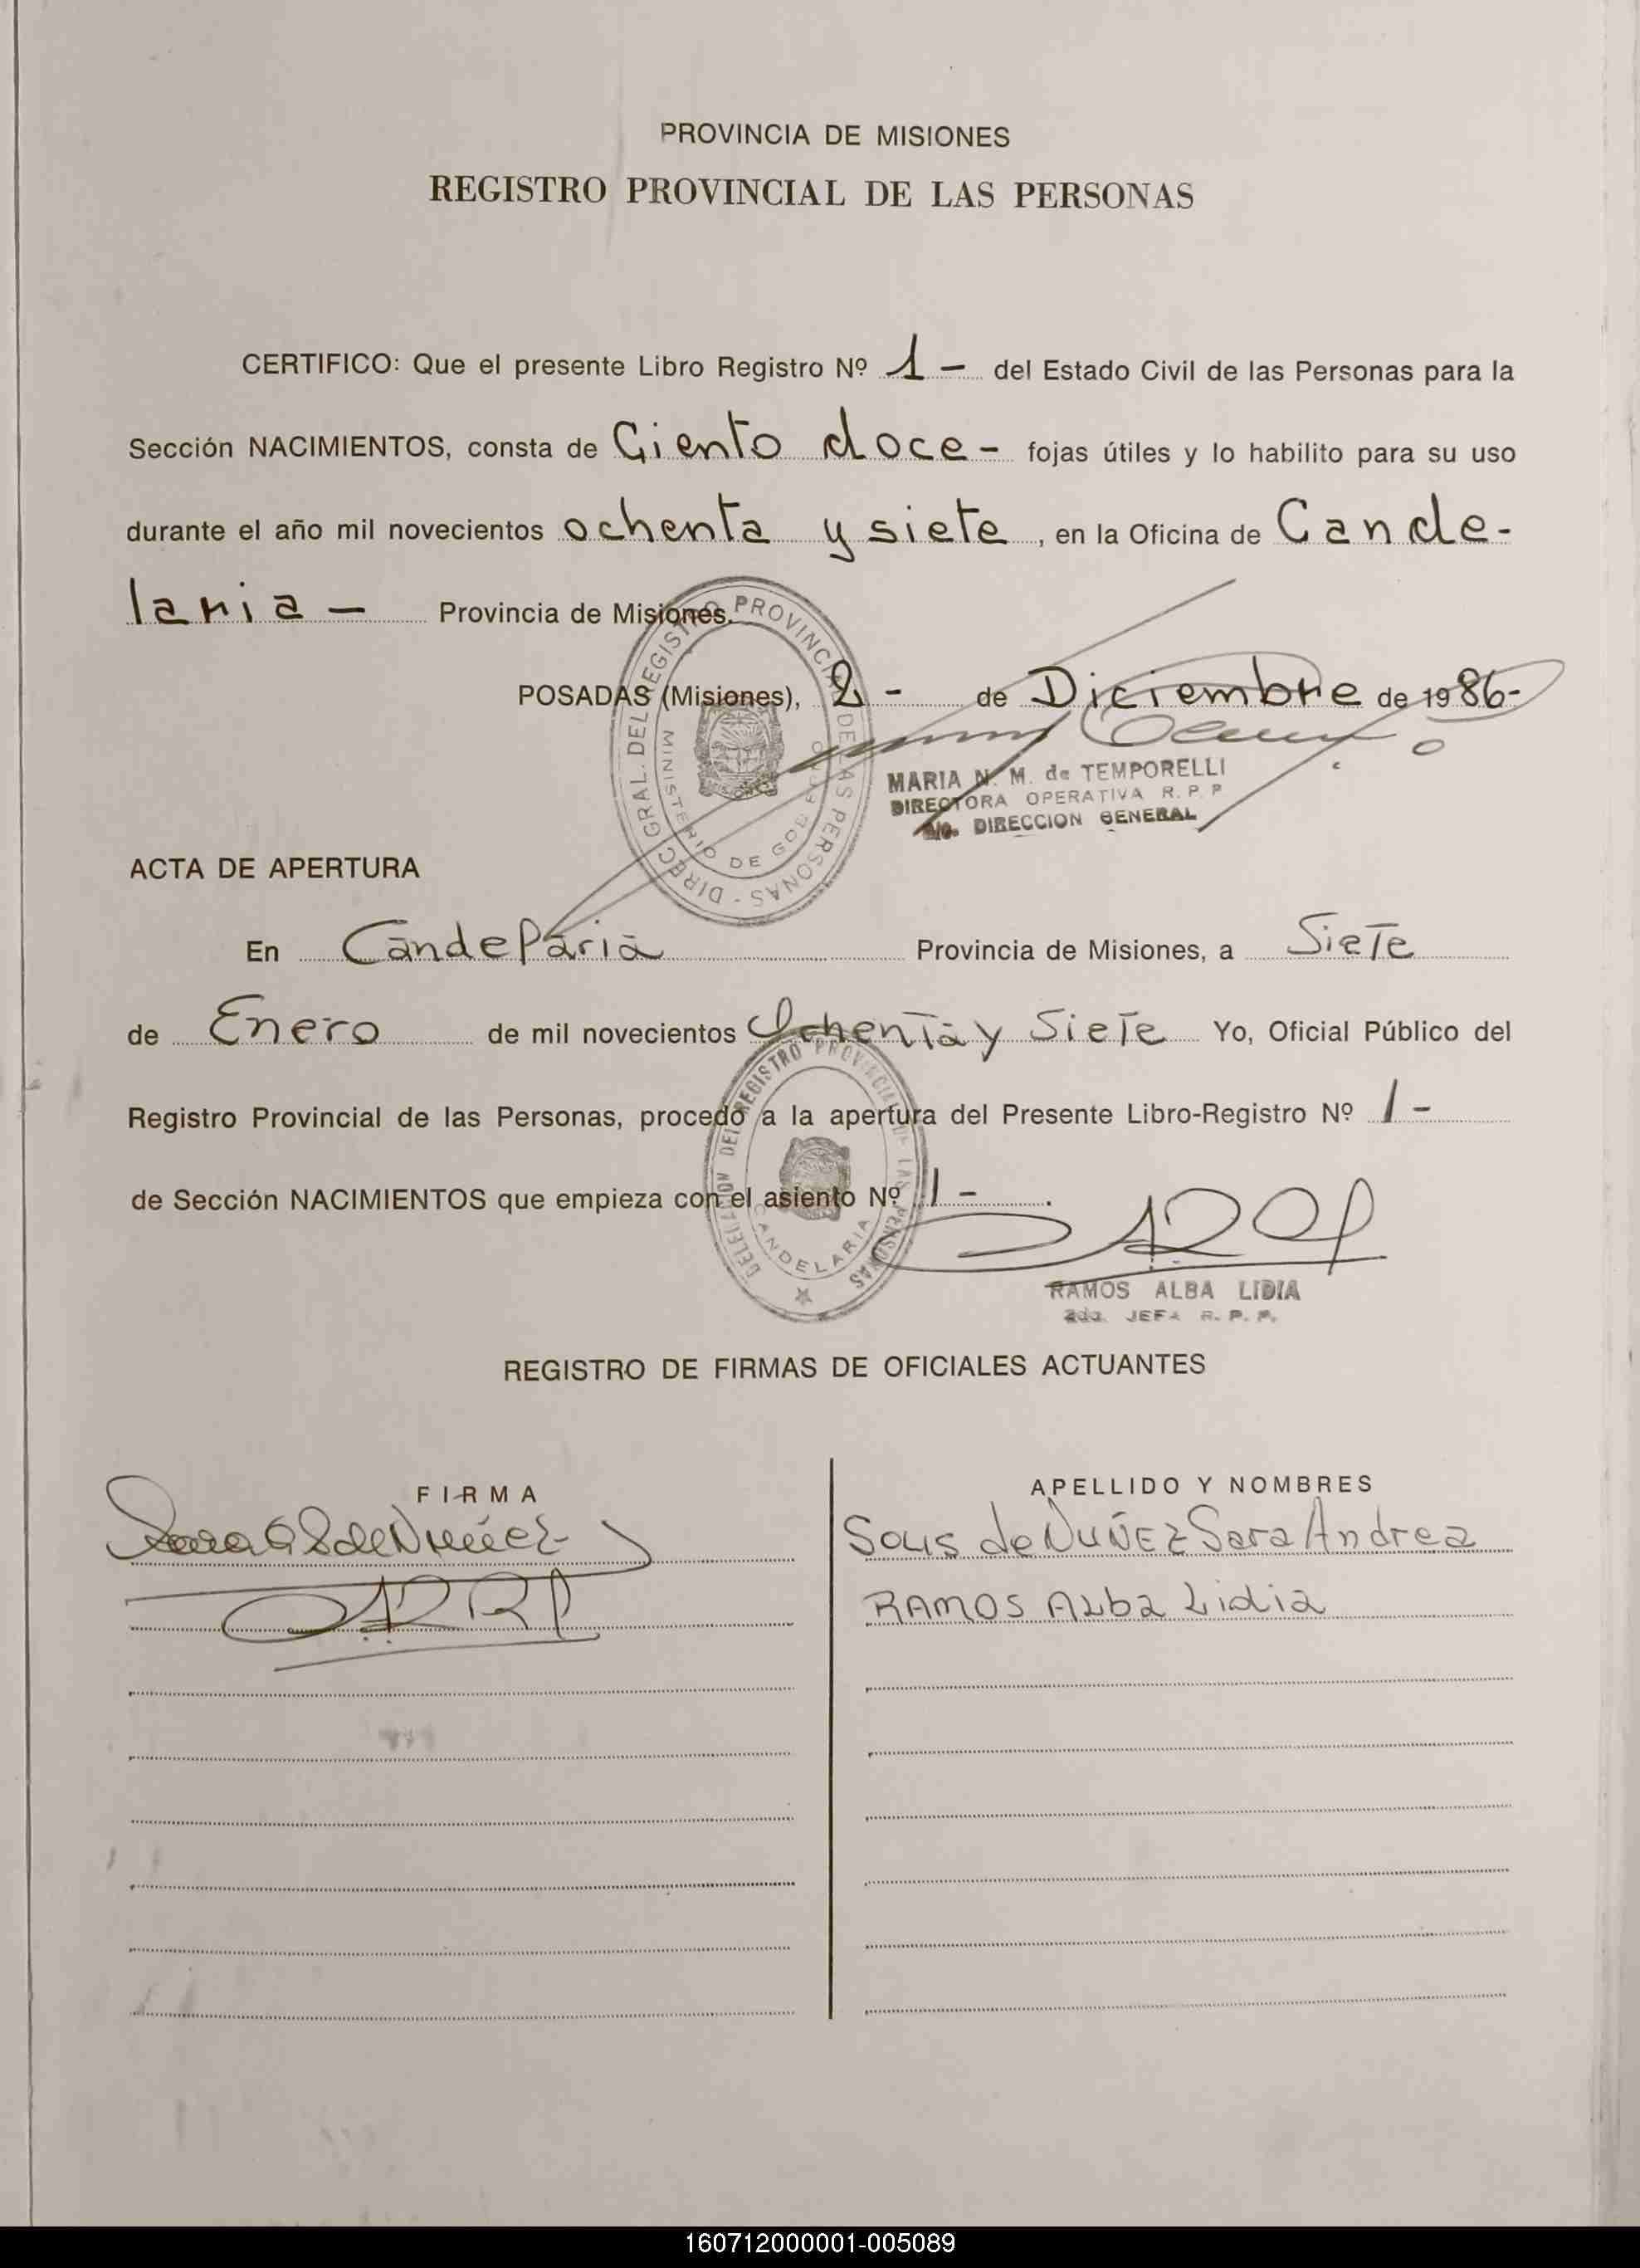 PROVINCIA DE MISIONES
REGISTRO PROVINCIAL DE LAS PERSONAS
CERTIFICO: Que el presente Libro Registro Nº 1 - del Estado Civil de las Personas para la
Sección NACIMIENTOS, consta de Ciento doce - fojas útiles y lo habilito para su uso
durante el año mil novecientos ochenta y siete, en la Oficina de Cande-
laria - Provincia de Misiones.
DIREC. GRAL. DEL REGISTRO PROVINCIAL DE LAS PERSONAS -
MINISTERIO DE GOBIERNO
POSADAS (Misiones), 2 - de Diciembre de 1986-
MARIA N. M. de TEMPORELLI
DIRECTORA OPERATIVA R. P. P
A/c. DIRECCION GENERAL
ACTA DE APERTURA
En Candelaria Provincia de Misiones, a Siete
de Enero de mil novecientos Ochenta y Siete Yo, Oficial Público del
Registro Provincial de las Personas, procedo a la apertura del Presente Libro-Registro Nº 1 -
de Sección NACIMIENTOS que empieza con el asiento Nº 1 - .
DELEGACION DEL REGISTRO PROVINCIAL DE LAS PERSONAS
CANDELARIA
RAMOS ALBA LIDIA
2da. JEFA R. P. P.
REGISTRO DE FIRMAS DE OFICIALES ACTUANTES
FIRMA
APELLIDO Y NOMBRES
Sara A S de Nuñez
Solis de NUÑEZ Sara Andrea
RAMOS ALba Lidia
160712000001-005089